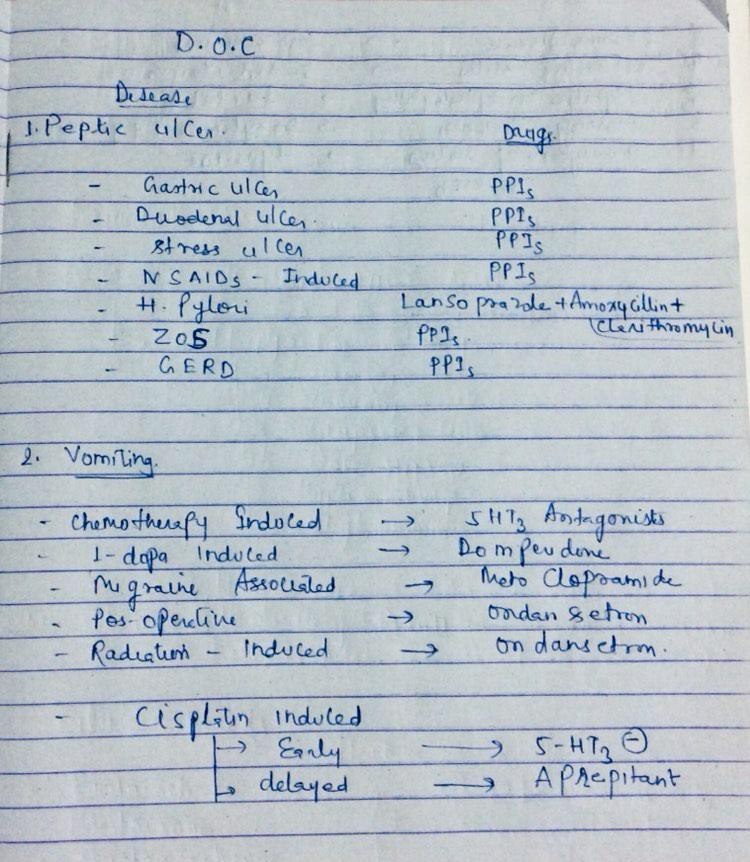 D.O.C
Disease
1. Peptic ulcer.
Drugs.
- Gastric ulcer PPIs
- Duodenal ulcer. PPIs
- Stress ulcer PPIs
- NSAIDs - Induced PPIs
- H. Pylori Lansoprazole + Amoxycillin +
Clerithromycin
- ZOS PPIs.
- GERD PPIs
2. Vomiting.
- Chemotherapy Induced → 5HT3 Antagonists
- l-dopa Induced → Domperidone
- Migraine Associated → Meto Clopramide
- Pos-operative → ondansetron
- Radiation - Induced → ondansetron.
- Cisplatin induced
→ Early → 5-HT3 ⊖
→ delayed → APrepitant